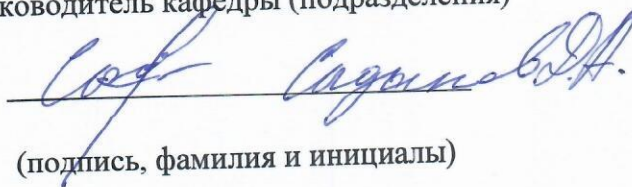 ководитель кафедры (подразделения)
Садыков Д.А.
(подпись, фамилия и инициалы)